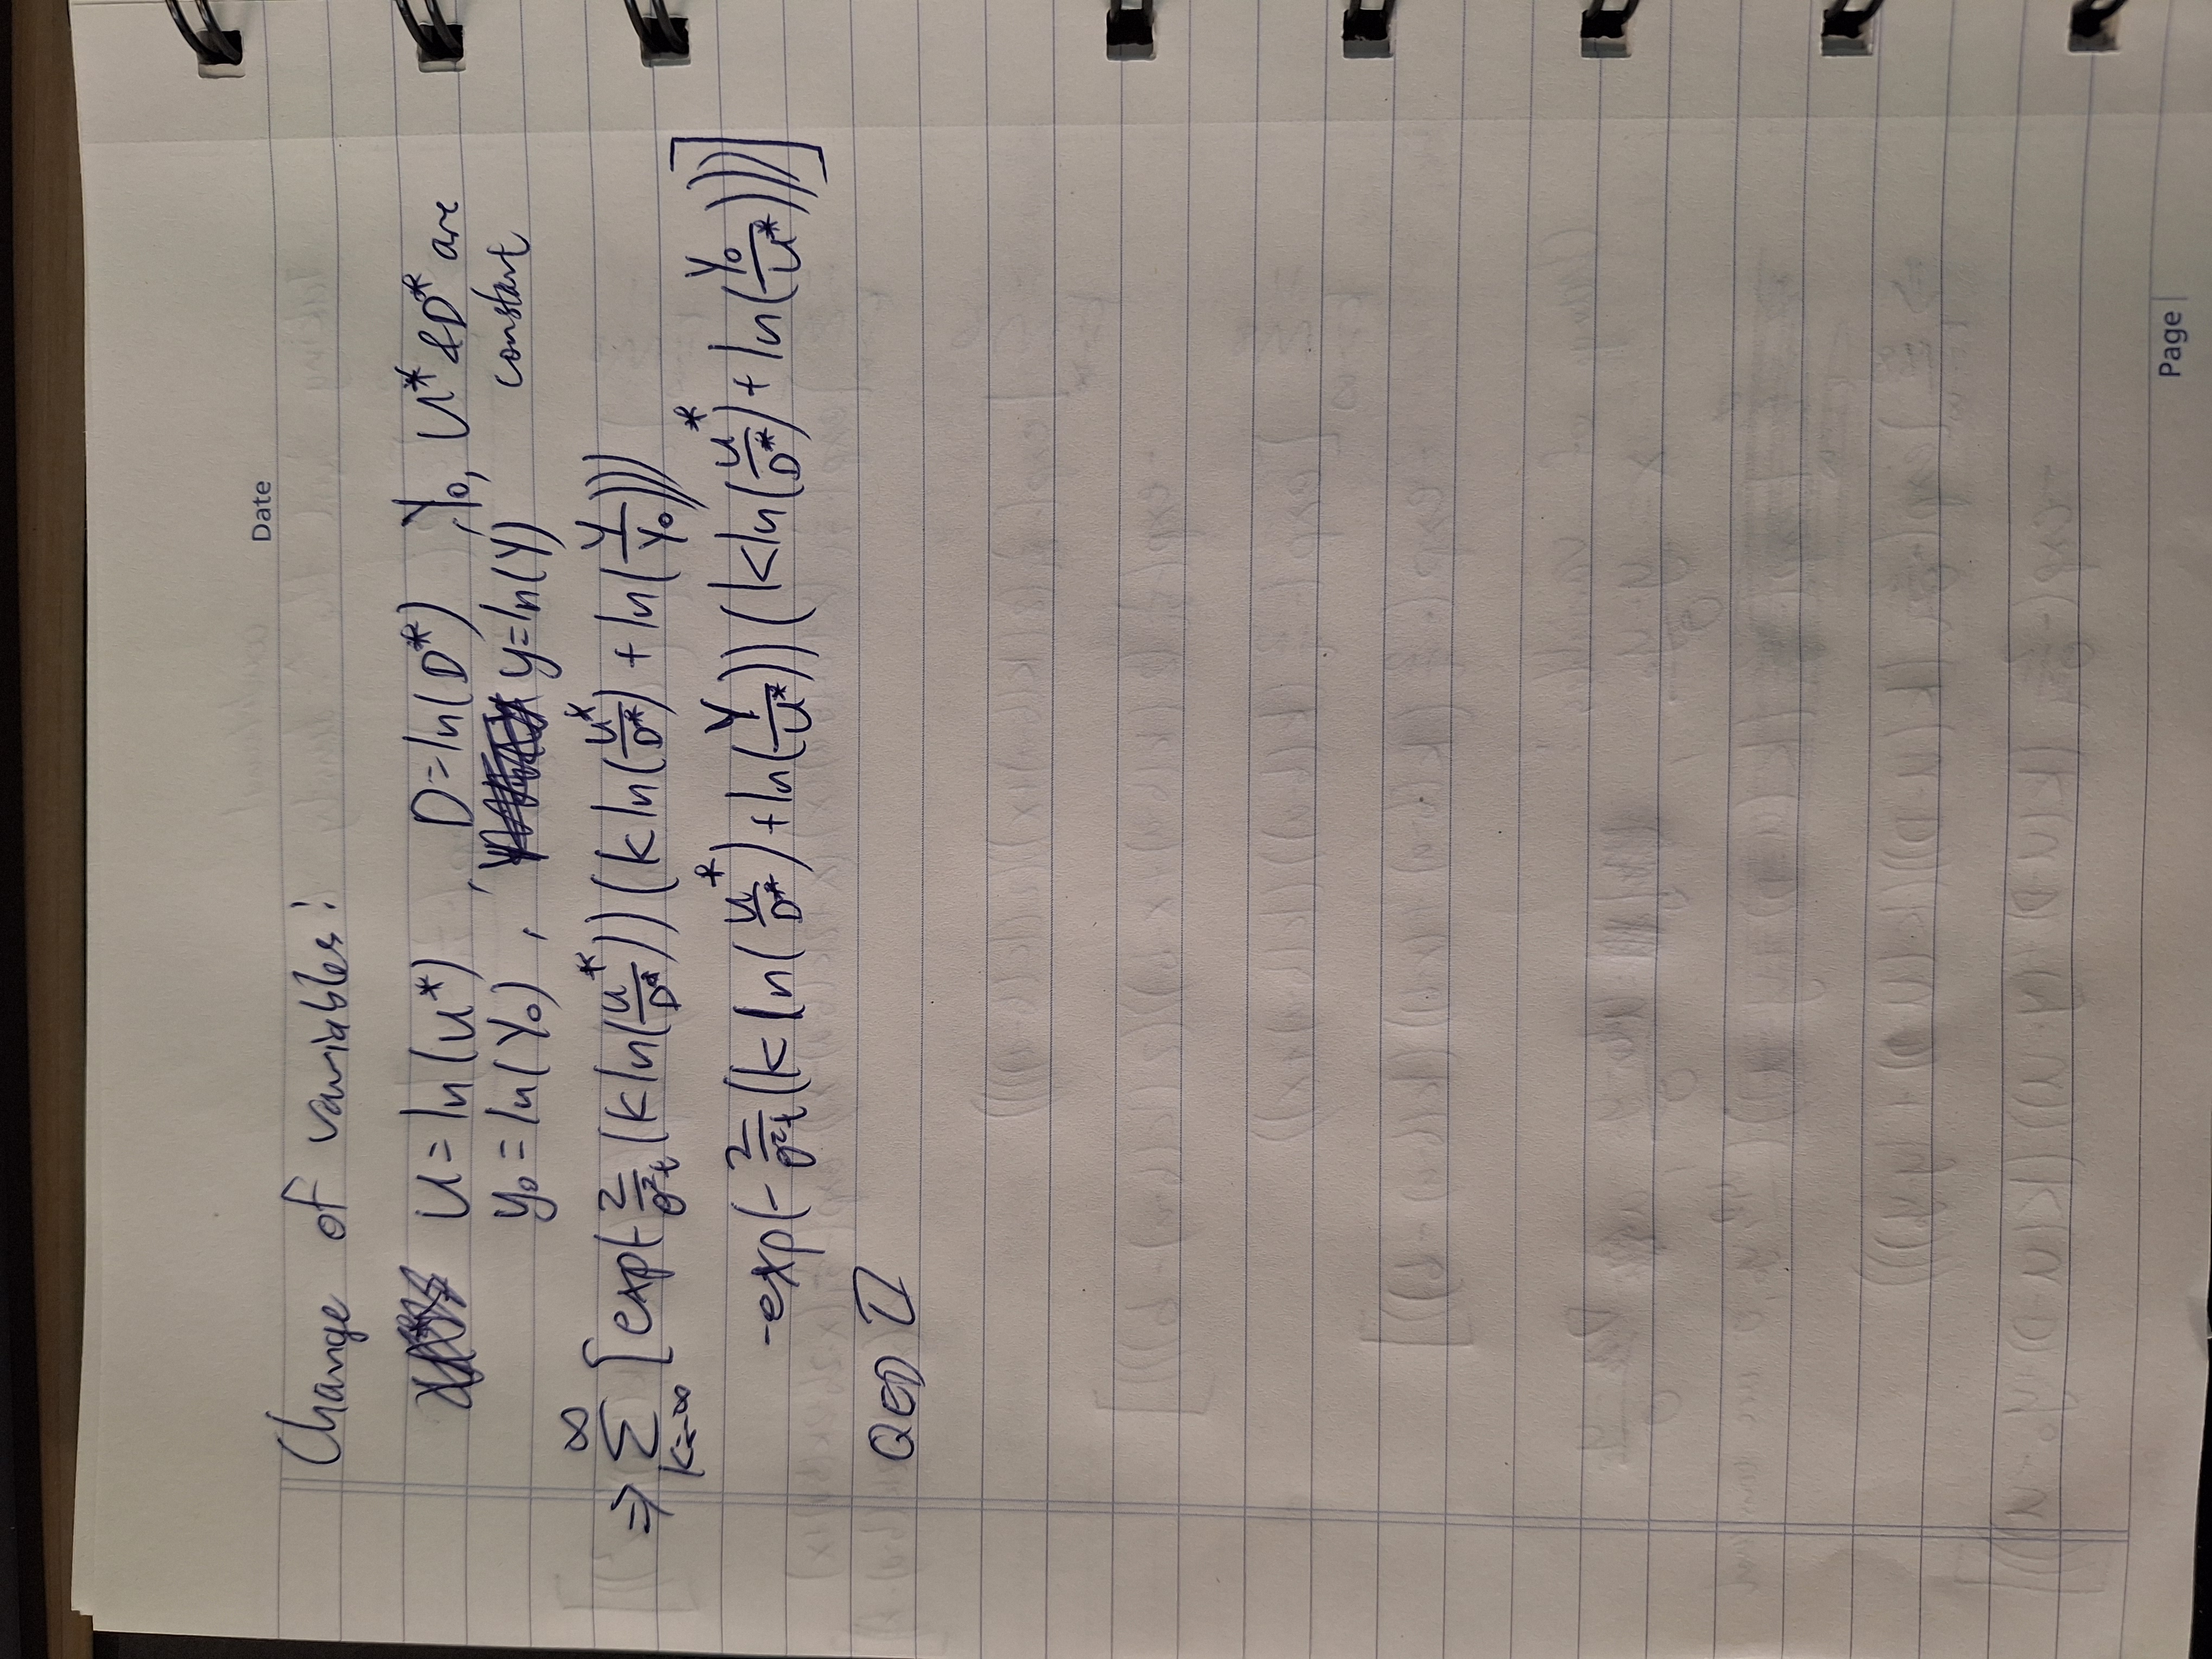 Date
Change of variables:
U = ln(U*) , D = ln(D*) , Y₀, U* & D* are
y₀ = ln(Y₀) , y = ln(Y) constant
⇒ ∑_{k=-∞}^{∞} [exp(-2/(σ²t) (k ln(U*/D*)) (k ln(U*/D*) + ln(Y/Y₀)))
-exp(-2/(σ²t) (k ln(U*/D*) + ln(Y/U*)) (k ln(U*/D*) + ln(Y₀/U*)))]
QED □
Page